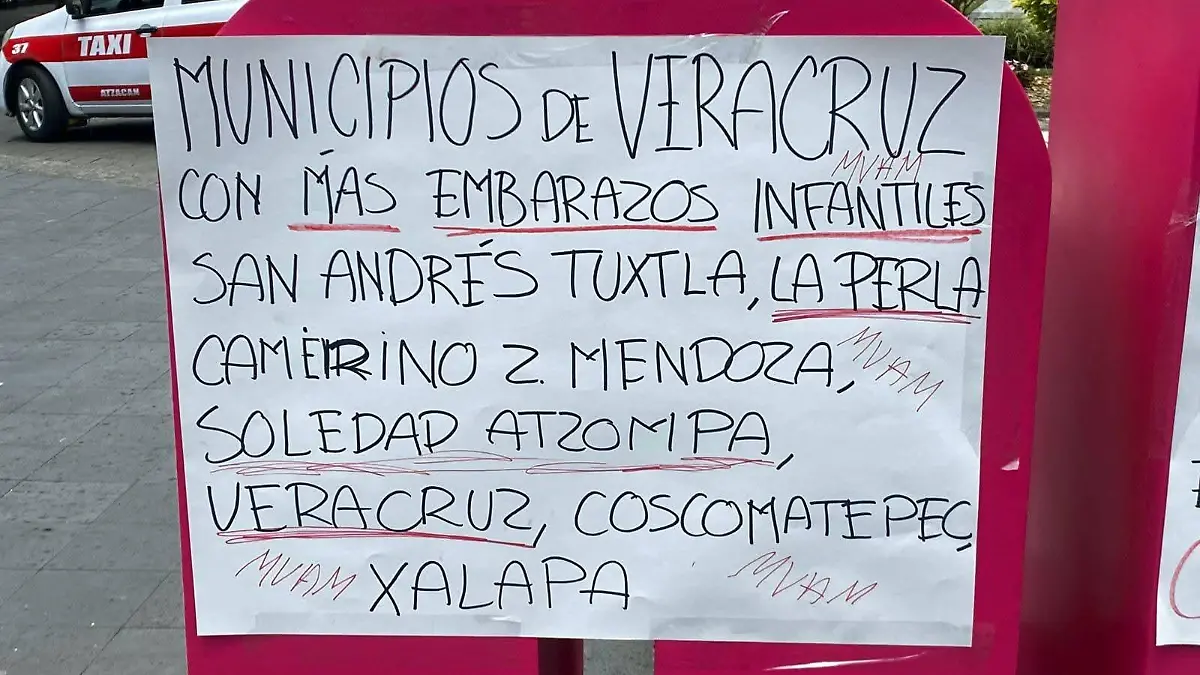 37 TAXI
ATZACAN
MUNICIPIOS DE VERACRUZ
MVAM
CON MÁS EMBARAZOS INFANTILES
SAN ANDRÉS TUXTLA, LA PERLA
CAMERINO Z. MENDOZA,
MVAM
SOLEDAD ATZOMPA,
VERACRUZ, COSCOMATEPEC,
MVAM XALAPA MVAM